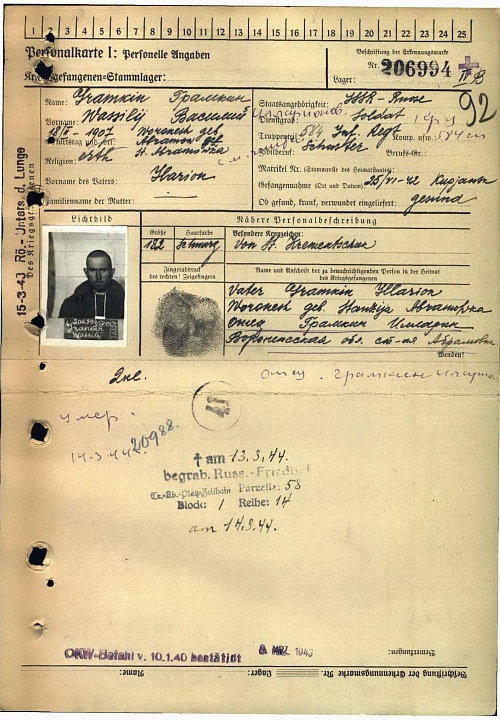 1 2 3 4 5 6 7 8 9 10 11 12 13 14 15 16 17 18 19 20 21 22 23 24 25
Personalkarte I: Personelle Angaben
Kriegsgefangenen-Stammlager:
Beschriftung der Erkennungsmarke
Nr. 206994
Lager: IV B
92
Name: Gramkin Грамкин
Vorname: Wassilij Василий
18/II-1907 Woronesh geb
Religion: orth
Vorname des Vaters: Ilarion
Familienname der Mutter:
Staatsangehörigkeit: SSSR - Russe
Dienstgrad: Soldat
Truppenteil: 584 Inf. Regt Komp. usw.:
Zivilberuf: Schuster Berufs-Gr.:
Matrikel Nr. (Stammrolle des Heimatstaates):
Gefangennahme (Ort und Datum): 25/VI-42 Kupjansk
Ob gesund, krank, verwundet eingeliefert: gesund
Lichtbild
Nähere Personalbeschreibung
Größe Haarfarbe Besondere Kennzeichen:
schwarz Von St. Krementschuk
Fingerabdruck
des rechten! Zeigefingers
Name und Anschrift der zu benachrichtigenden Person in der Heimat
des Kriegsgefangenen
Vater Gramkin Illarion
Отец Грамкин
Воронежская обл. ст-ия
Wenden!
206994
Gramkin
Wassili
15-3-43 Rö.-Unters. d. Lunge
Des Kriegsgefangenen
отец. Грамкин
умер.
14-3-44 20988.
41
† am 13.3.44.
begrab. Russ.-Friedh
Tr.-Üb.-Platz Zeithain Parzelle: 58
Block: 1 Reihe: 14
am 14.3.44.
OKW-Befehl v. 10.1.40 bestätigt
Bemerkungen:
Name: Lager: Beschriftung der Erkennungsmarke Nr.